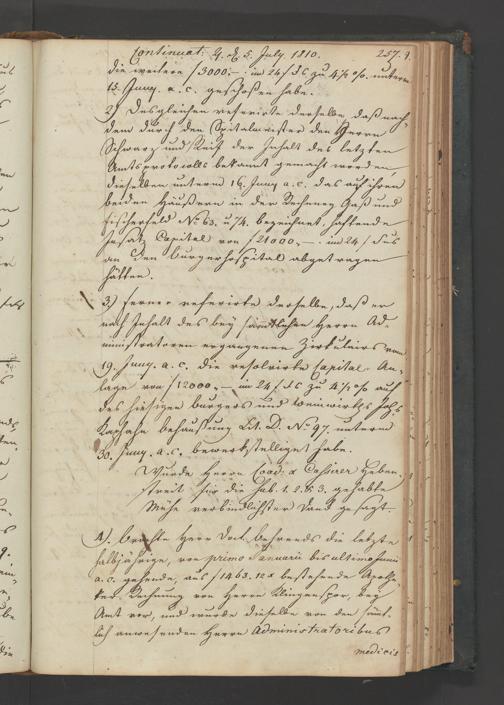 Continuat. G. d. 5. July. 1810. 257.
die weitere f 3000,– im 24 f fs zu 4 % unterm
15. Juny. a. c. geschoßen habe.
2) Desgleichen referirte derselbe, daß nach
dem durch den Spitalmeister den Herren
Schwarz und Reiß der Inhalt des letzten
Amtsprotocolls bekannt gemacht worden,
dieselben unterm 16. Juny a. c. das auf ihren
beiden Häußern in der Rechney Gaß und
Fischerfeld No. 63. u. 74. bezeichnet, haftende
Insatz Capital von f 21000,– im 24 f Fus
an den Burgerhospital abgetragen
hätten.
3) Ferner referirte derselbe, daß er
nach Inhalt des bey sämtlichen Herren Ad-
ministratoren ergangenen Zirkulairs vom
19. Juny. a. c. die resolvirte Capital An-
lage von f 12000,– im 24 f fs zu 4 % auf
des hiesigen Burgers und Weinwirths Joh.
Behaußung Lit. D. No. 97. unterm
30. Juny. a. c. bewerkstelliget habe.
Wurde Herrn Cassirer
streit für die sub. 1. 2. & 3. gehabte
Mühe verbindlichster Dank gesagt.
4) Brachte Herr Doct. Behrends die letzte
halbjährige, von primo Januarii bis ultimo Junii
a. c. gehende, aus f 1463. 12 x bestehende Apothe-
ker-Rechnung von Herrn Klingenspor, bey
Amt vor, und wurde dieselbe von den sämt-
lich anwesenden Herren Administratoribus
medicis